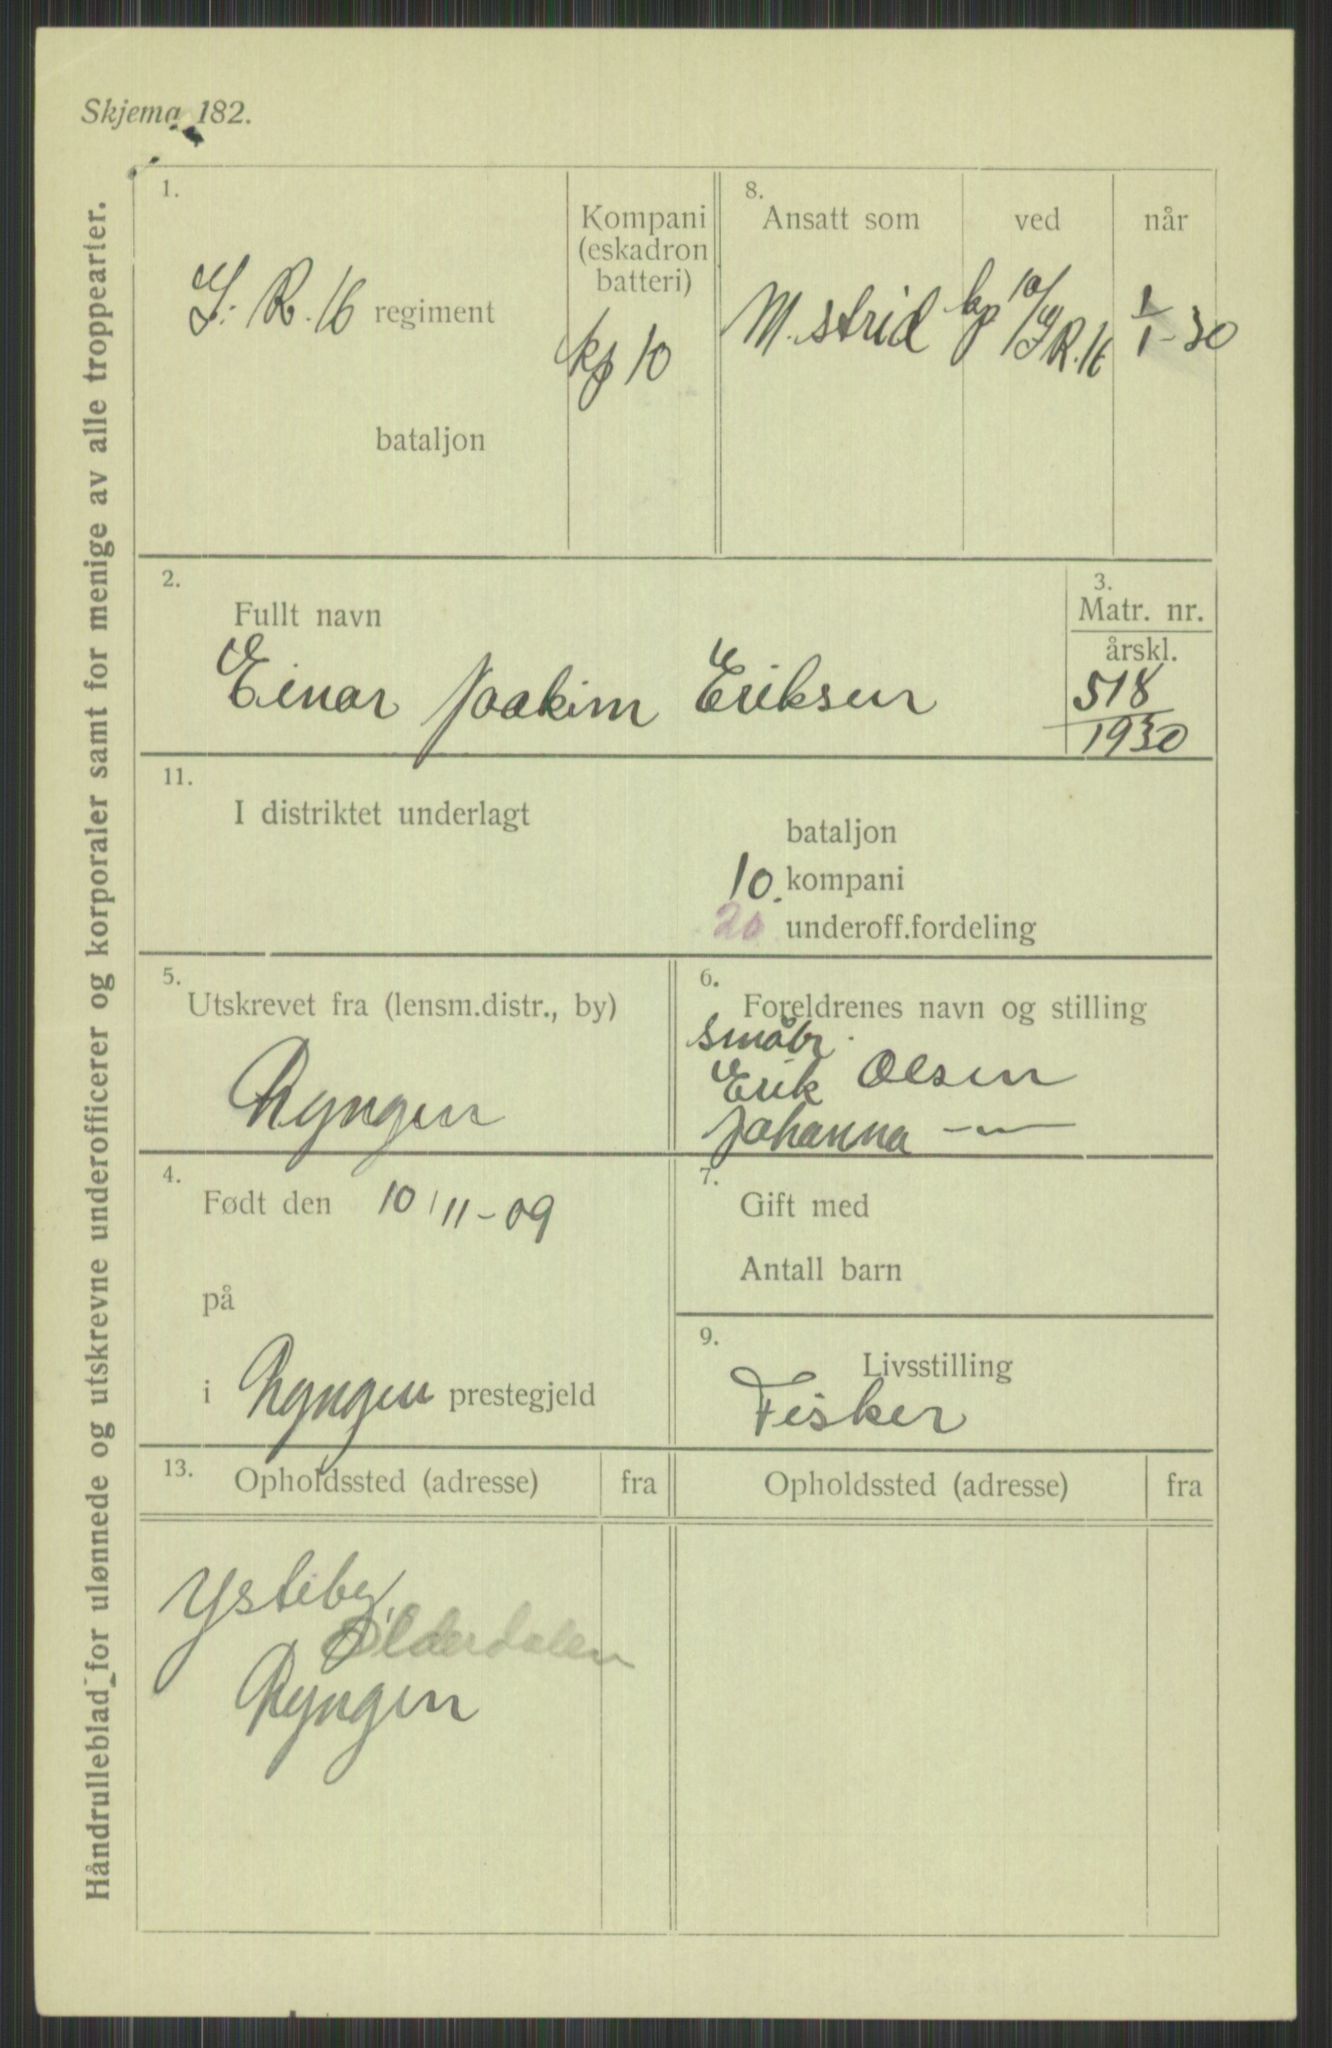 Skjema 182.
Håndrulleblad for ulønnede og utskrevne underofficerer og korporaler samt for menige av alle troppearter.
1.
I. R. 16 regiment
bataljon
Kompani
(eskadron
batteri)
kp 10
8.
Ansatt som
ved
når
M. strid
kp 10/I R. 16
1/1-30
2.
Fullt navn
Einar Joakim Eriksen
3.
Matr. nr.
årskl.
518
1930
11.
I distriktet underlagt
bataljon
10. kompani
20 underoff.fordeling
5.
Utskrevet fra (lensm.distr., by)
Lyngen
6.
Foreldrenes navn og stilling
småbr.
Erik Olsen
Johanna —"—
4.
Født den 10/11-09
på
i Lyngen prestegjeld
7.
Gift med
Antall barn
9.
Livsstilling
Fisker
13.
Opholdssted (adresse)
fra
Opholdssted (adresse)
fra
Ysteby,
Olderdalen
Lyngen